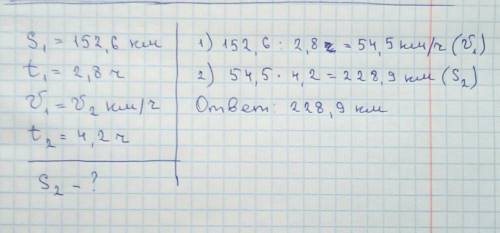 S₁ = 152,6 км
t₁ = 2,8 ч
V₁ = V₂ км/ч
t₂ = 4,2 ч
S₂ - ?
1) 152,6 : 2,8 = 54,5 км/ч (V₁)
2) 54,5 · 4,2 = 228,9 км (S₂)
Ответ: 228,9 км